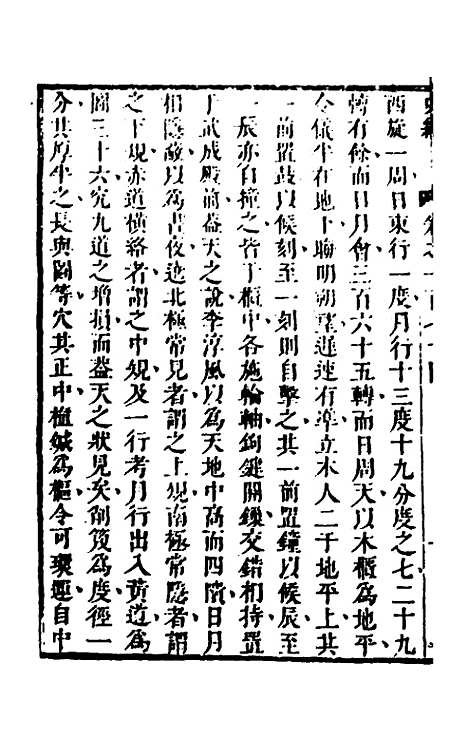 西旋一周日東行一度月行十三度十九分度之七二十九
轉有餘而日月會三百六十五轉而日周天以木櫃爲地平
令儀半在地下晦明朔望遲速有準立木人二于地平上其
一前置鼓以候刻至一刻則自擊之其一前置鐘以候辰至
一辰亦自撞之皆于櫃中各施輪軸鉤鍵關鎖交錯相持置
于武成殿前蓋天之說李淳風以爲天地中高而四隤日月
相隱蔽以爲晝夜遶北極常見者謂之上規南極常隱者謂
之下規赤道橫絡者謂之中規及一行考月行出入黃道爲
圖三十六究九道之增損而蓋天之狀見矣削篾爲度徑一
分其厚半之長與圖等穴其正中植鍼爲樞令可環運自中